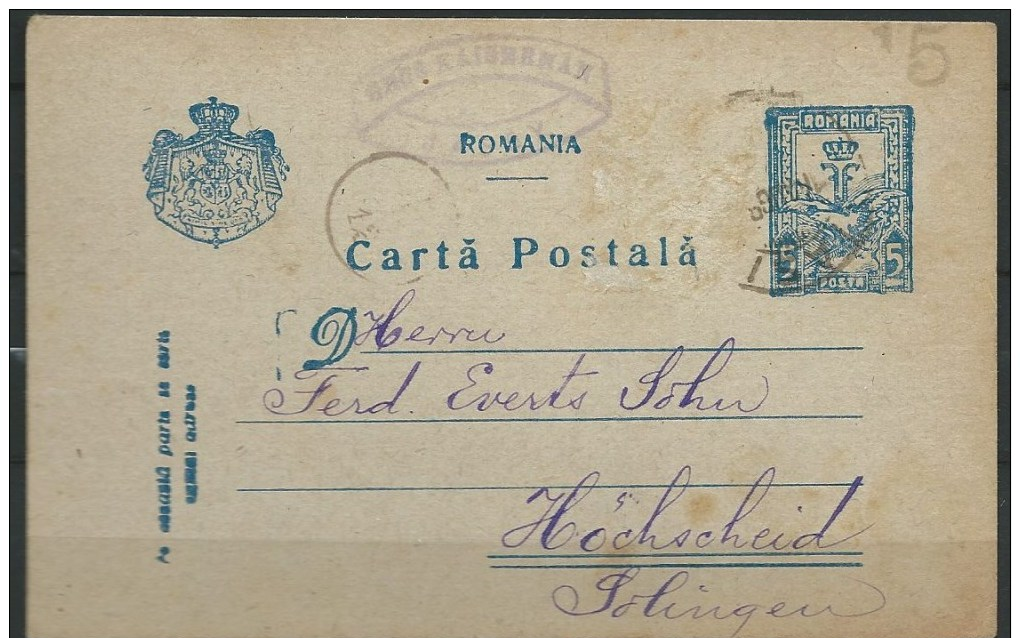 15
ROMANIA
ROMANIA
Cartă Postală
5 5
POSTA
D Herrn
Ferd. Everts Sohn
Höchscheid
Solingen
Pe această parte se scrie
numai adresa